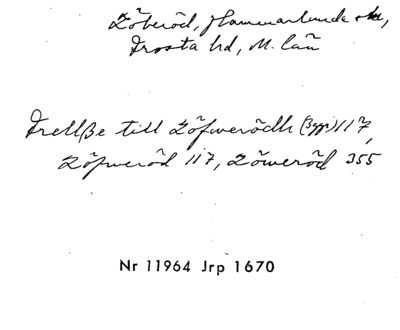 Löberöd, Hammarlunda sn,
Frosta hd, M. län
Trellße till Löfwerödh (3ggr) 117,
Löfweröd 117, Löweröd 355
Nr 11964 Jrp 1670